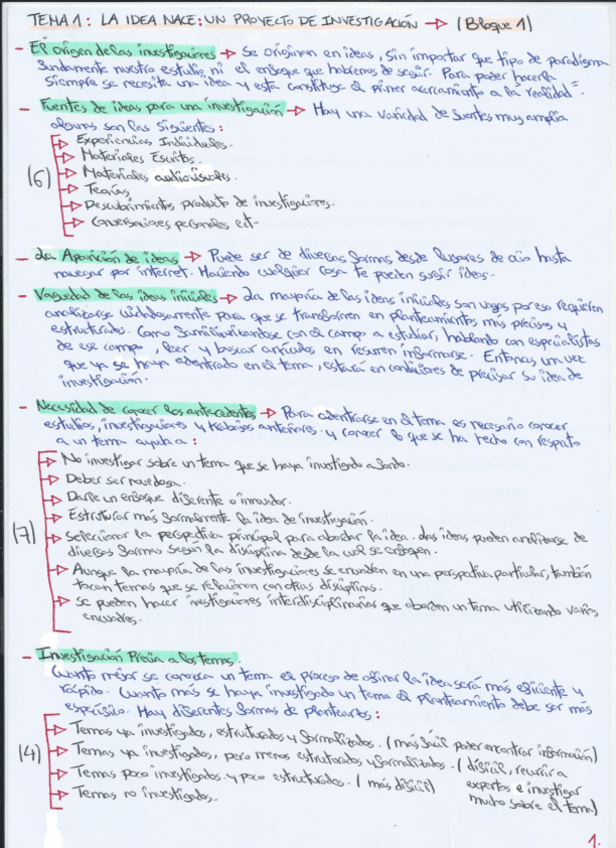 TEMA 1: LA IDEA NACE: UN PROYECTO DE INVESTIGACIÓN → (Bloque 1)
- El origen de las investigaciones → Se originan en ideas, sin importar que tipo de paradigma
fundamente nuestro estudio ni el enfoque que habremos de seguir. Para poder hacerla
siempre se necesita una idea y esta constituye el primer acercamiento a la realidad".
- Fuentes de ideas para una investigación → Hay una variedad de fuentes muy amplia
algunas son las siguientes:
Experiencias Individuales.
Materiales Escritos.
(6) Materiales audiovisuales.
Teorías
Descubrimientos producto de investigaciones.
Conversaciones personales ect-
- La Aparición de ideas → Puede ser de diversas formas desde lugares de ocio hasta
navegar por internet. Haciendo cualquier cosa te pueden surgir ideas-
- Vaguedad de las ideas iniciales → La mayoría de las ideas iniciales son vagas por eso requieren
analizarse cuidadosamente para que se transformen en planteamientos más precisos y
estructurados. Como familiarizandose con el campo a estudiar, hablando con especialistas
de ese campo, leer y buscar artículos en resumen informarse. Entonces una vez
que ya se haya adentrado en el tema, estará en condiciones de precisar su idea de
investigación.
- Necesidad de conocer los antecedentes → Para adentrarse en el tema es necesario conocer
estudios, investigaciones y trabajos anteriores. y conocer lo que se ha hecho con respeto
a un tema ayuda a:
No investigar sobre un tema que se haya investigado a fondo.
Deber ser novedosa.
Darle un enfoque diferente o innovador.
Estruturar más formalmente la idea de investigación.
(7) Seleccionar la perspectiva principal para abordar la idea. Las ideas pueden analizarse de
diversas formas según la disciplina desde la cual se enfoquen.
Aunque la mayoría de las investigaciones se enmarquen en una perspectiva particular, también
tocan temas que se relacionan con otras disciplinas.
Se pueden hacer investigaciones interdisciplinarias que aborden un tema utilizando varios
- Investigación Previa a los temas.
Cuanto mejor se conozca un tema el proceso de afinar la idea será más eficiente y
rápido. Cuanto más se haya investigado un tema el planteamiento debe ser más
específico. Hay diferentes formas de plantearlos:
Temas ya investigados, estructurados y formalizados. (más fácil poder encontrar información)
(4) Temas ya investigados, pero menos estruturados y formalizados. (difícil, recurrir a
expertos e investigar
mucho sobre el tema)
Temas poco investigados y poco estructurados. (más difícil)
Temas no investigados.
1.